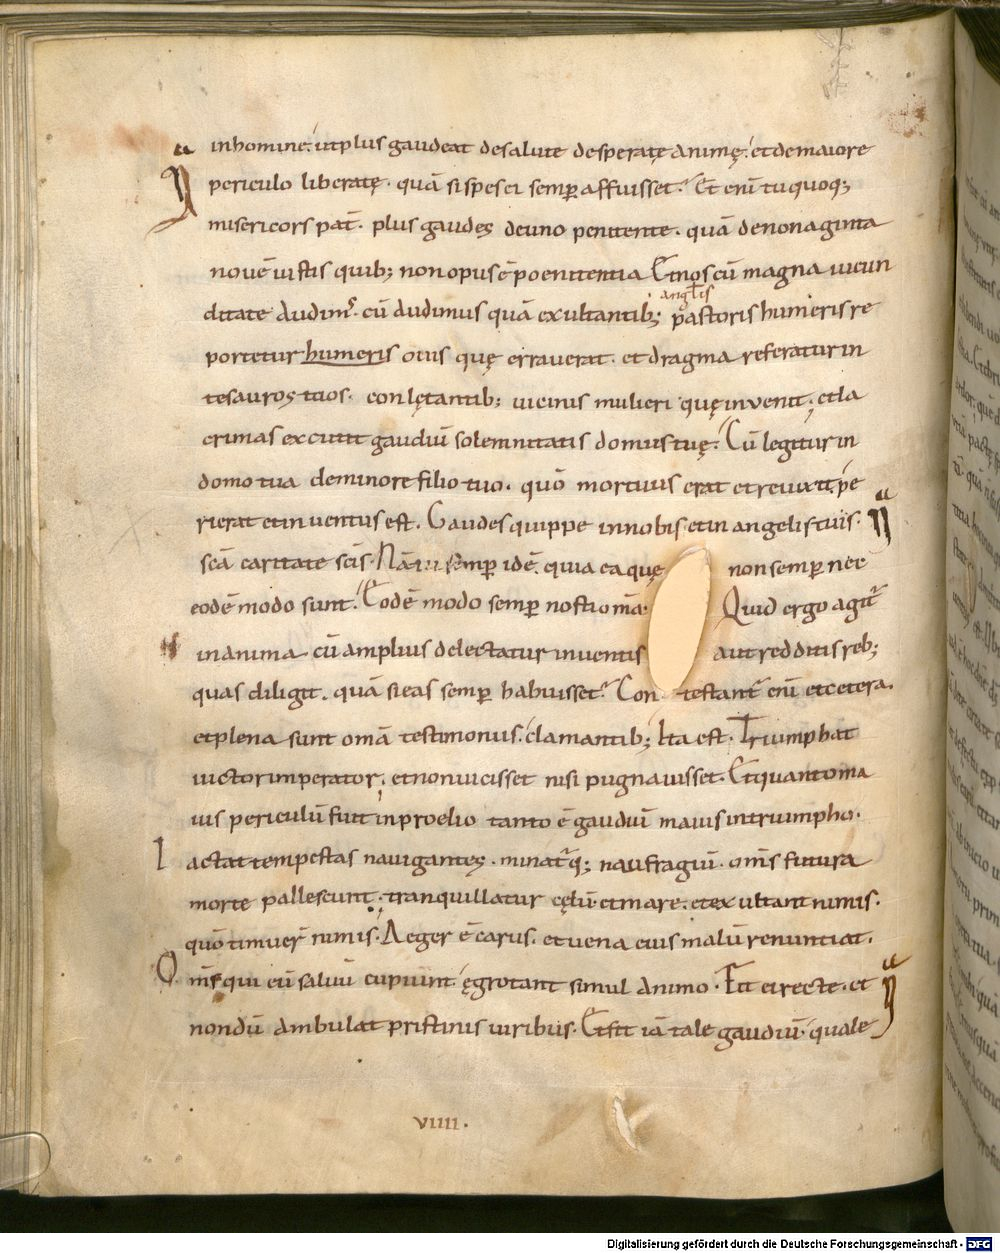 in homine. ut plus gaudeat desalute desperatę animę. et demaiore
periculo liberatę. quā si spes ei semꝑ affuisset. Et eni tu quoq;
misericors pat̄. plus gaudes deuno penitente. quā denonaginta
nouē iustis quib; non opus ē poenitentia. Et nos cū magna iucun
ditate audim᷒. cū audimus quā exultantib; pastoris humeris re
anglis
portetur humeris ouis quę erraverat. et dragma referatur in
tesauros tuos. conlętantib; uicinis mulieri quę invenit. et la
crimas excutit gaudiū solemnitatis domus tuę. Cū legitur in
domo tua de minore filio tuo. quō mortuus erat et reuixit. pe
rierat et inventus est. Gaudes quippe in nobis. et in angelis tuis.
scā caritate scīs. Nā semꝑ idē. quia ea quę non semꝑ nec
eodē modo sunt. Eodē modo semꝑ nosti omā. Quid ergo agit᷑
in anima cū amplius delectatur inventis aut redditis reb;
quas diligit. quā si eas semꝑ habuisset. Contestant᷑ eni et cetera.
et plena sunt omā testimoniis. clamantib; Ita est. Triumphat
uictor imperator. et non uicisset nisi pugnauisset. Et quanto ma
ius periculū fuit in proelio tanto ē gaudiū maius in triumpho.
Iactat tempestas navigantes. minat᷑q; naufragiū. oms futura
morte pallescunt. tranquillatur cęlū et mare. et exultant nimis.
quō timuer̄ nimis. Aeger ē carus. et uena eius malū renuntiat.
Oms qui eū saluū cupiunt ęgrotant simul animo. Fit ei recte. et
nondū ambulat pristinis uiribus. Et fit iā tale gaudiū. quale
VIIII.
Digitalisierung gefördert durch die Deutsche Forschungsgemeinschaft - DFG